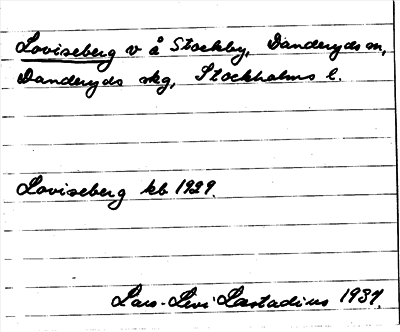 Loviseberg v å Stockby, Danderyds sn,
Danderyds skg, Stockholms l.
Loviseberg kb 1929.
Lars-Levi Læstadius 1937.